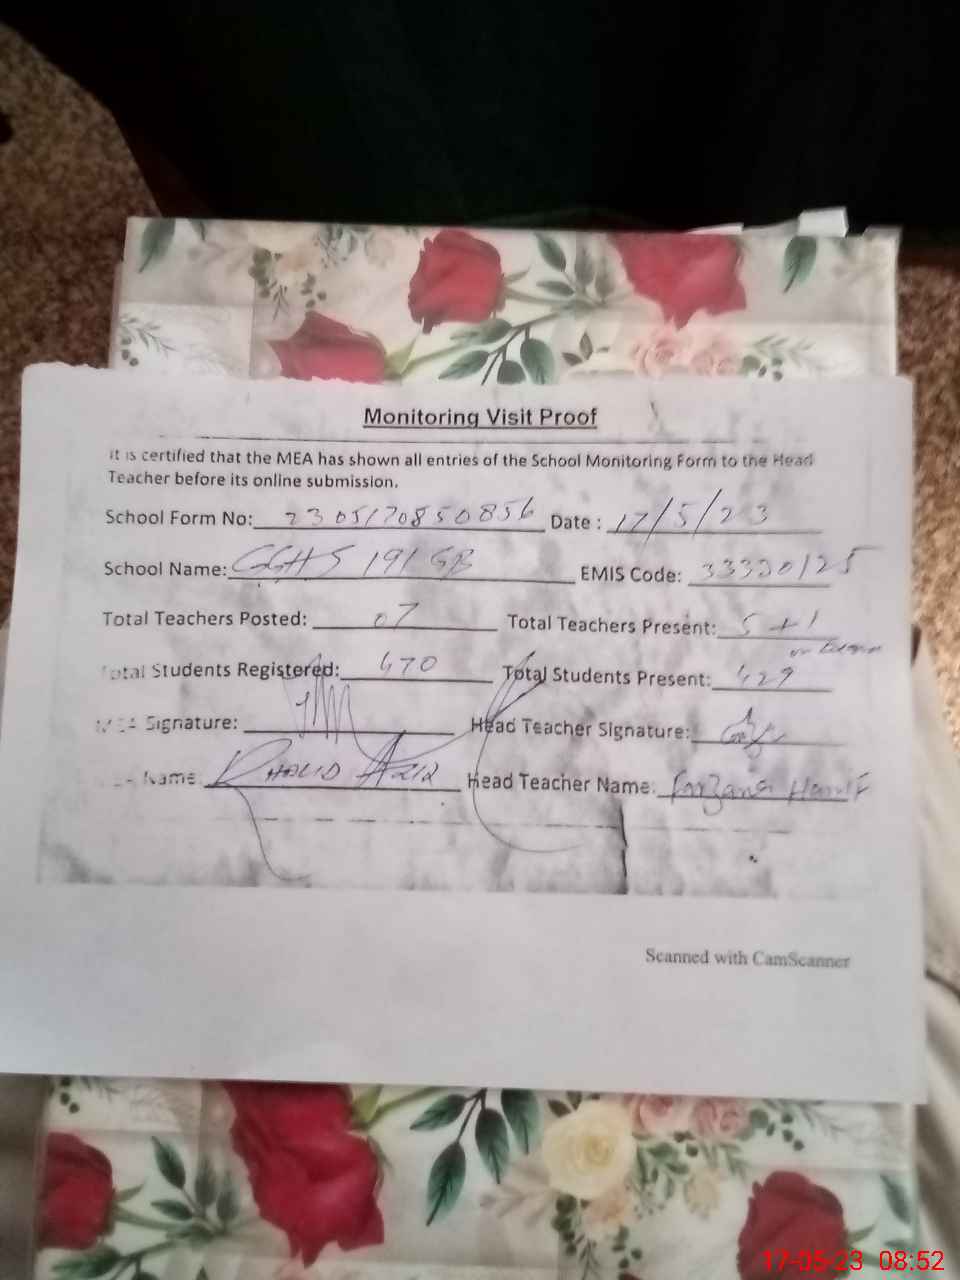 Monitoring Visit Proof
It is certified that the MEA has shown all entries of the School Monitoring Form to the Head
Teacher before its online submission.
School Form No: 2305170850856 Date : 17/5/23
School Name: GGHS 191 GB EMIS Code: 33330125
Total Teachers Posted: 07 Total Teachers Present: 5+1
on
Total Students Registered: 470 Total Students Present: 429
MEA Signature: Head Teacher Signature:
MEA Name KHALID AZIZ Head Teacher Name: Farzana Hanif
Scanned with CamScanner
17-05-23 08:52